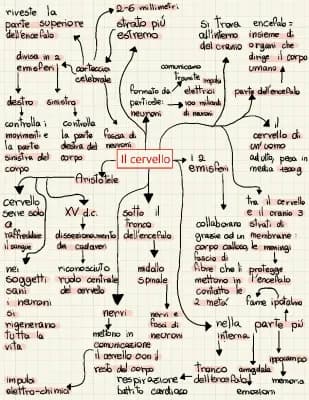 riveste la
parte superiore
dell'encefalo
2-6 millimetri
strato più
estremo
si trova
all'interno
del cranio
encefalo=
insieme di
organi che
dirige il corpo
umano
divisa in 2
emisferi
corteccia
celebrale
comunicano
tramite
impulsi
elettrici
formato da
particelle:
neuroni
100 miliardi
di neuroni
parte dell'encefalo
destro
sinistro
controlla i
movimenti e
la parte
sinistra del
corpo
controlla
la parte
destra del
corpo
fascia di
neuroni
il
cervello di
un'uomo
adulto, pesa in
media
Il cervello
i 2
emisferi
Aristotele
cervello
serve solo
a
raffreddare
il sangue
XV d.c.
dissezionamento
dei cadaveri
riconosciuto
ruolo centrale
del cervello
sotto il
tronco
dell'encefalo
midollo
spinale
nervi e
fasci di
neuroni
collaborano
grazie ad un
corpo calloso,
fascio di
fibre che li
mettono in
contatto le
2 metà
tra il cervello
e il cranio 3
strati di
membrane:
le meningi
protegge
l'encefalo
nei
soggetti
sani
i neuroni
si
rigenerano
tutta la
vita
nervi
mettono in
comunicazione
il cervello con il
resto del corpo
impulsi
elettro-chimici
nella
parte più
interna
fame
ipotalamo
ippocampo
memoria
amigdala
emozioni
tronco
dell'encefalo
respirazione
battito cardiaco